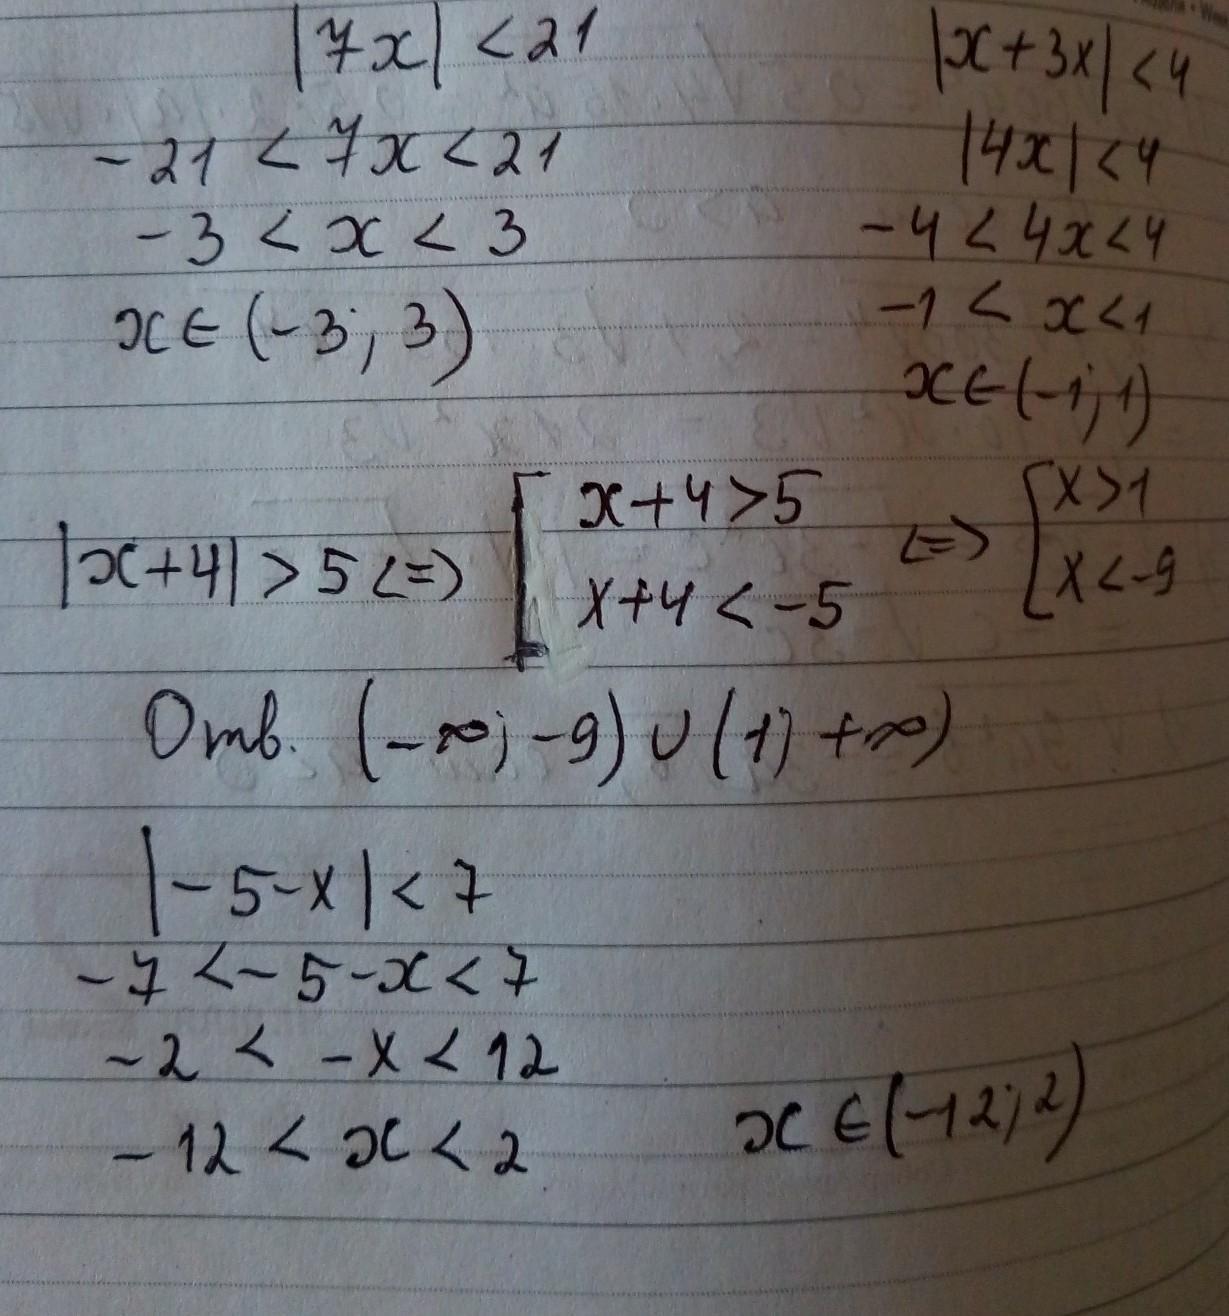 |7x| < 21
-21 < 7x < 21
-3 < x < 3
x ∈ (-3; 3)
|x+3x| < 4
|4x| < 4
-4 < 4x < 4
-1 < x < 1
x ∈ (-1; 1)
|x+4| > 5 <=> [ x+4 > 5 <=> [ x > 1
x+4 < -5 x < -9
Отв. (-∞; -9) ∪ (1; +∞)
|-5-x| < 7
-7 < -5-x < 7
-2 < -x < 12
-12 < x < 2 x ∈ (-12; 2)